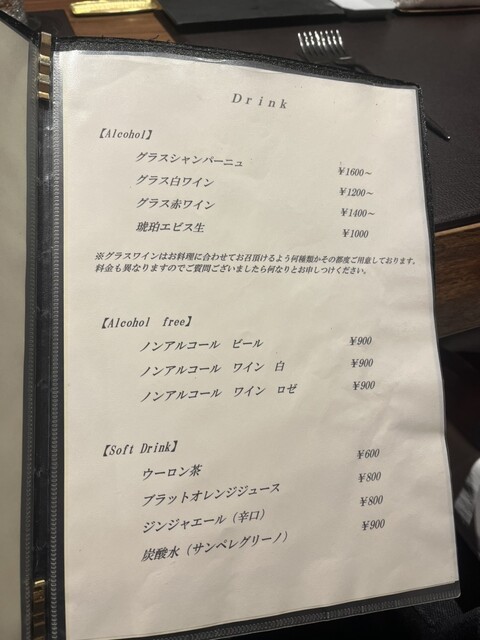 Drink
【Alcohol】
グラスシャンパーニュ ￥1600～
グラス白ワイン ￥1200～
グラス赤ワイン ￥1400～
琥珀エビス生 ￥1000
※グラスワインはお料理に合わせてお召頂けるよう何種類かその都度ご用意しております。
料金も異なりますのでご質問ございましたら何なりとお申しつけください。
【Alcohol free】
ノンアルコール ビール ￥900
ノンアルコール ワイン 白 ￥900
ノンアルコール ワイン ロゼ ￥900
【Soft Drink】
ウーロン茶 ￥600
ブラットオレンジジュース ￥800
ジンジャエール（辛口） ￥800
炭酸水（サンペレグリーノ） ￥900